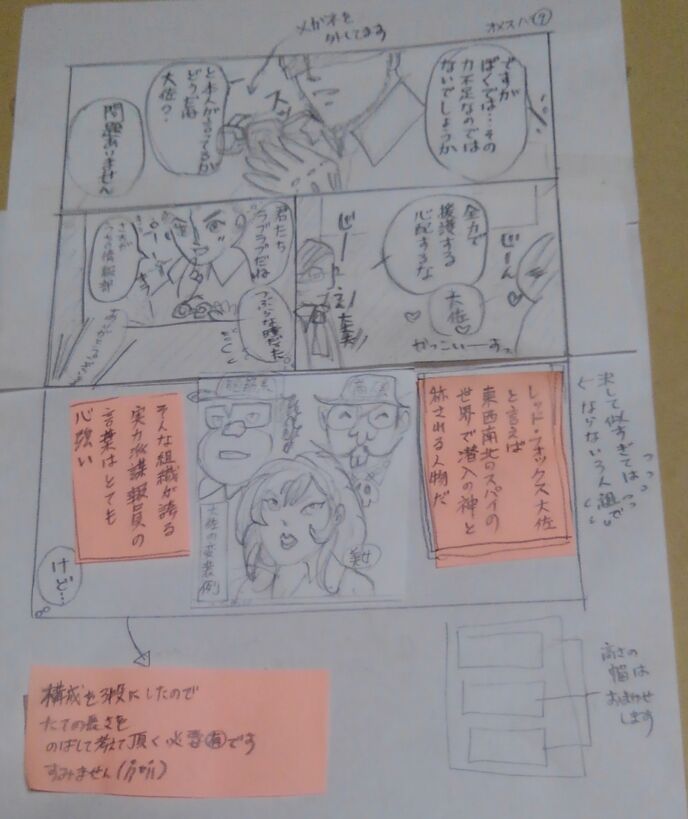 オメスパ⑨
メガネを
外してます
ですが
ぼくでは…その
力不足なのでは
ないでしょうか
スッ
と本人が言ってるが
どうだ
大佐?
問題ありません
じーん
全力で
援護する
心配するな
大佐
かっこいーすっ
君たち
ラブラブだね
つぶらな瞳だった。
決して似すぎては
ならない3人組で
レッド・フォックス大佐
と言えば
東西南北のスパイの
世界で潜入の神と
称される人物だ
大佐の変装例
美女
そんな組織が誇る
実力派諜報員の
言葉はとても
心強い
けど…
構成を3段にしたので
たての長さを
のばして考えて頂く必要有です
すみません
高さの
幅は
おまかせ
します